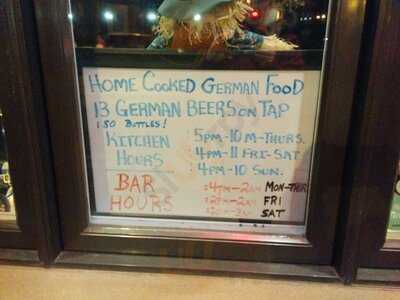 HOME COOKED GERMAN FOOD
13 GERMAN BEERS ON TAP
150 BOTTLES!
KITCHEN HOURS
5PM-10 M-THURS.
4PM-11 FRI-SAT
4PM-10 SUN.
BAR HOURS
4PM-2AM MON-THUR
FRI
SAT